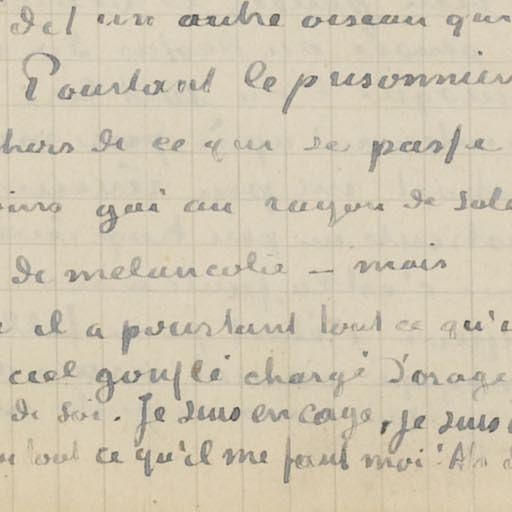 un autre oiseau qui
Pourtant le prisonnier
hors de ce qui se passe
gai au rayon de sole
de melancolie – mais
il a pourtant tout ce qu'
ciel gonflé chargé d'orage
de soi. Je suis en cage, je suis
tout ce qu'il me faut moi! Ah